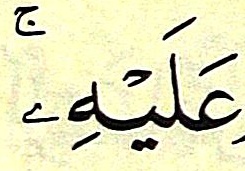 عَلَيْهِۦ ۚ